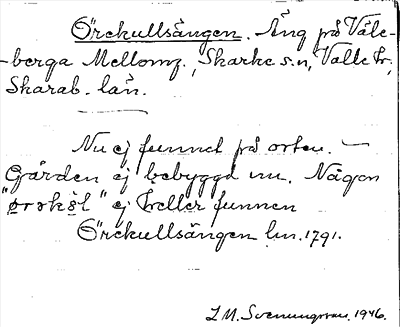 Örekullsängen. Äng på Våle-
-berga Mellomg., Skarke s.n, Valle hr,
Skarab. län.
Nu ej funnet på orten. —
"Gården ej bebyggd nu. Någon
" ej heller funnen
Örekullsängen lm. 1791.
L.M. Svenungsson. 1946.